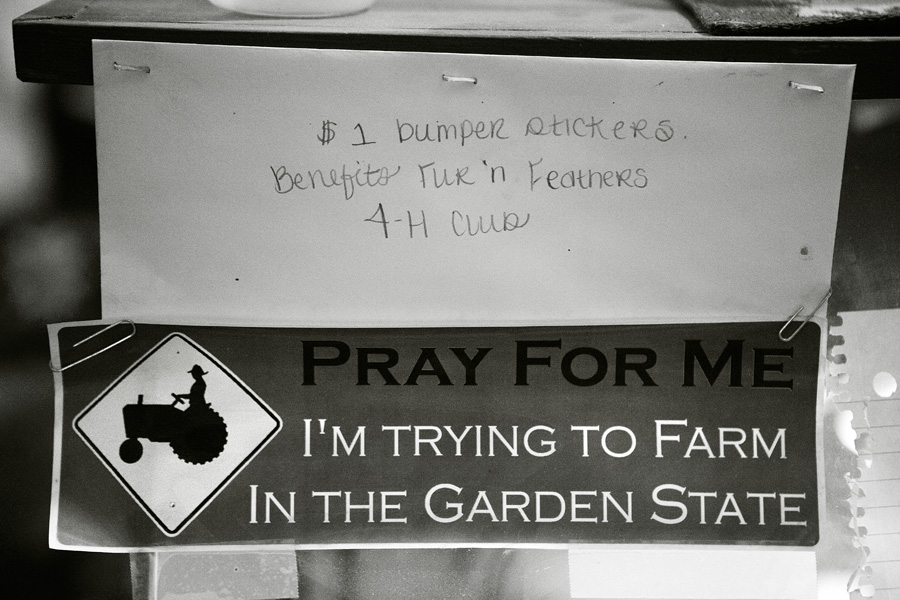 $ 1 bumper stickers.
Benefits Fur 'n Feathers
4-H Club
PRAY FOR ME
I'M TRYING TO FARM
IN THE GARDEN STATE